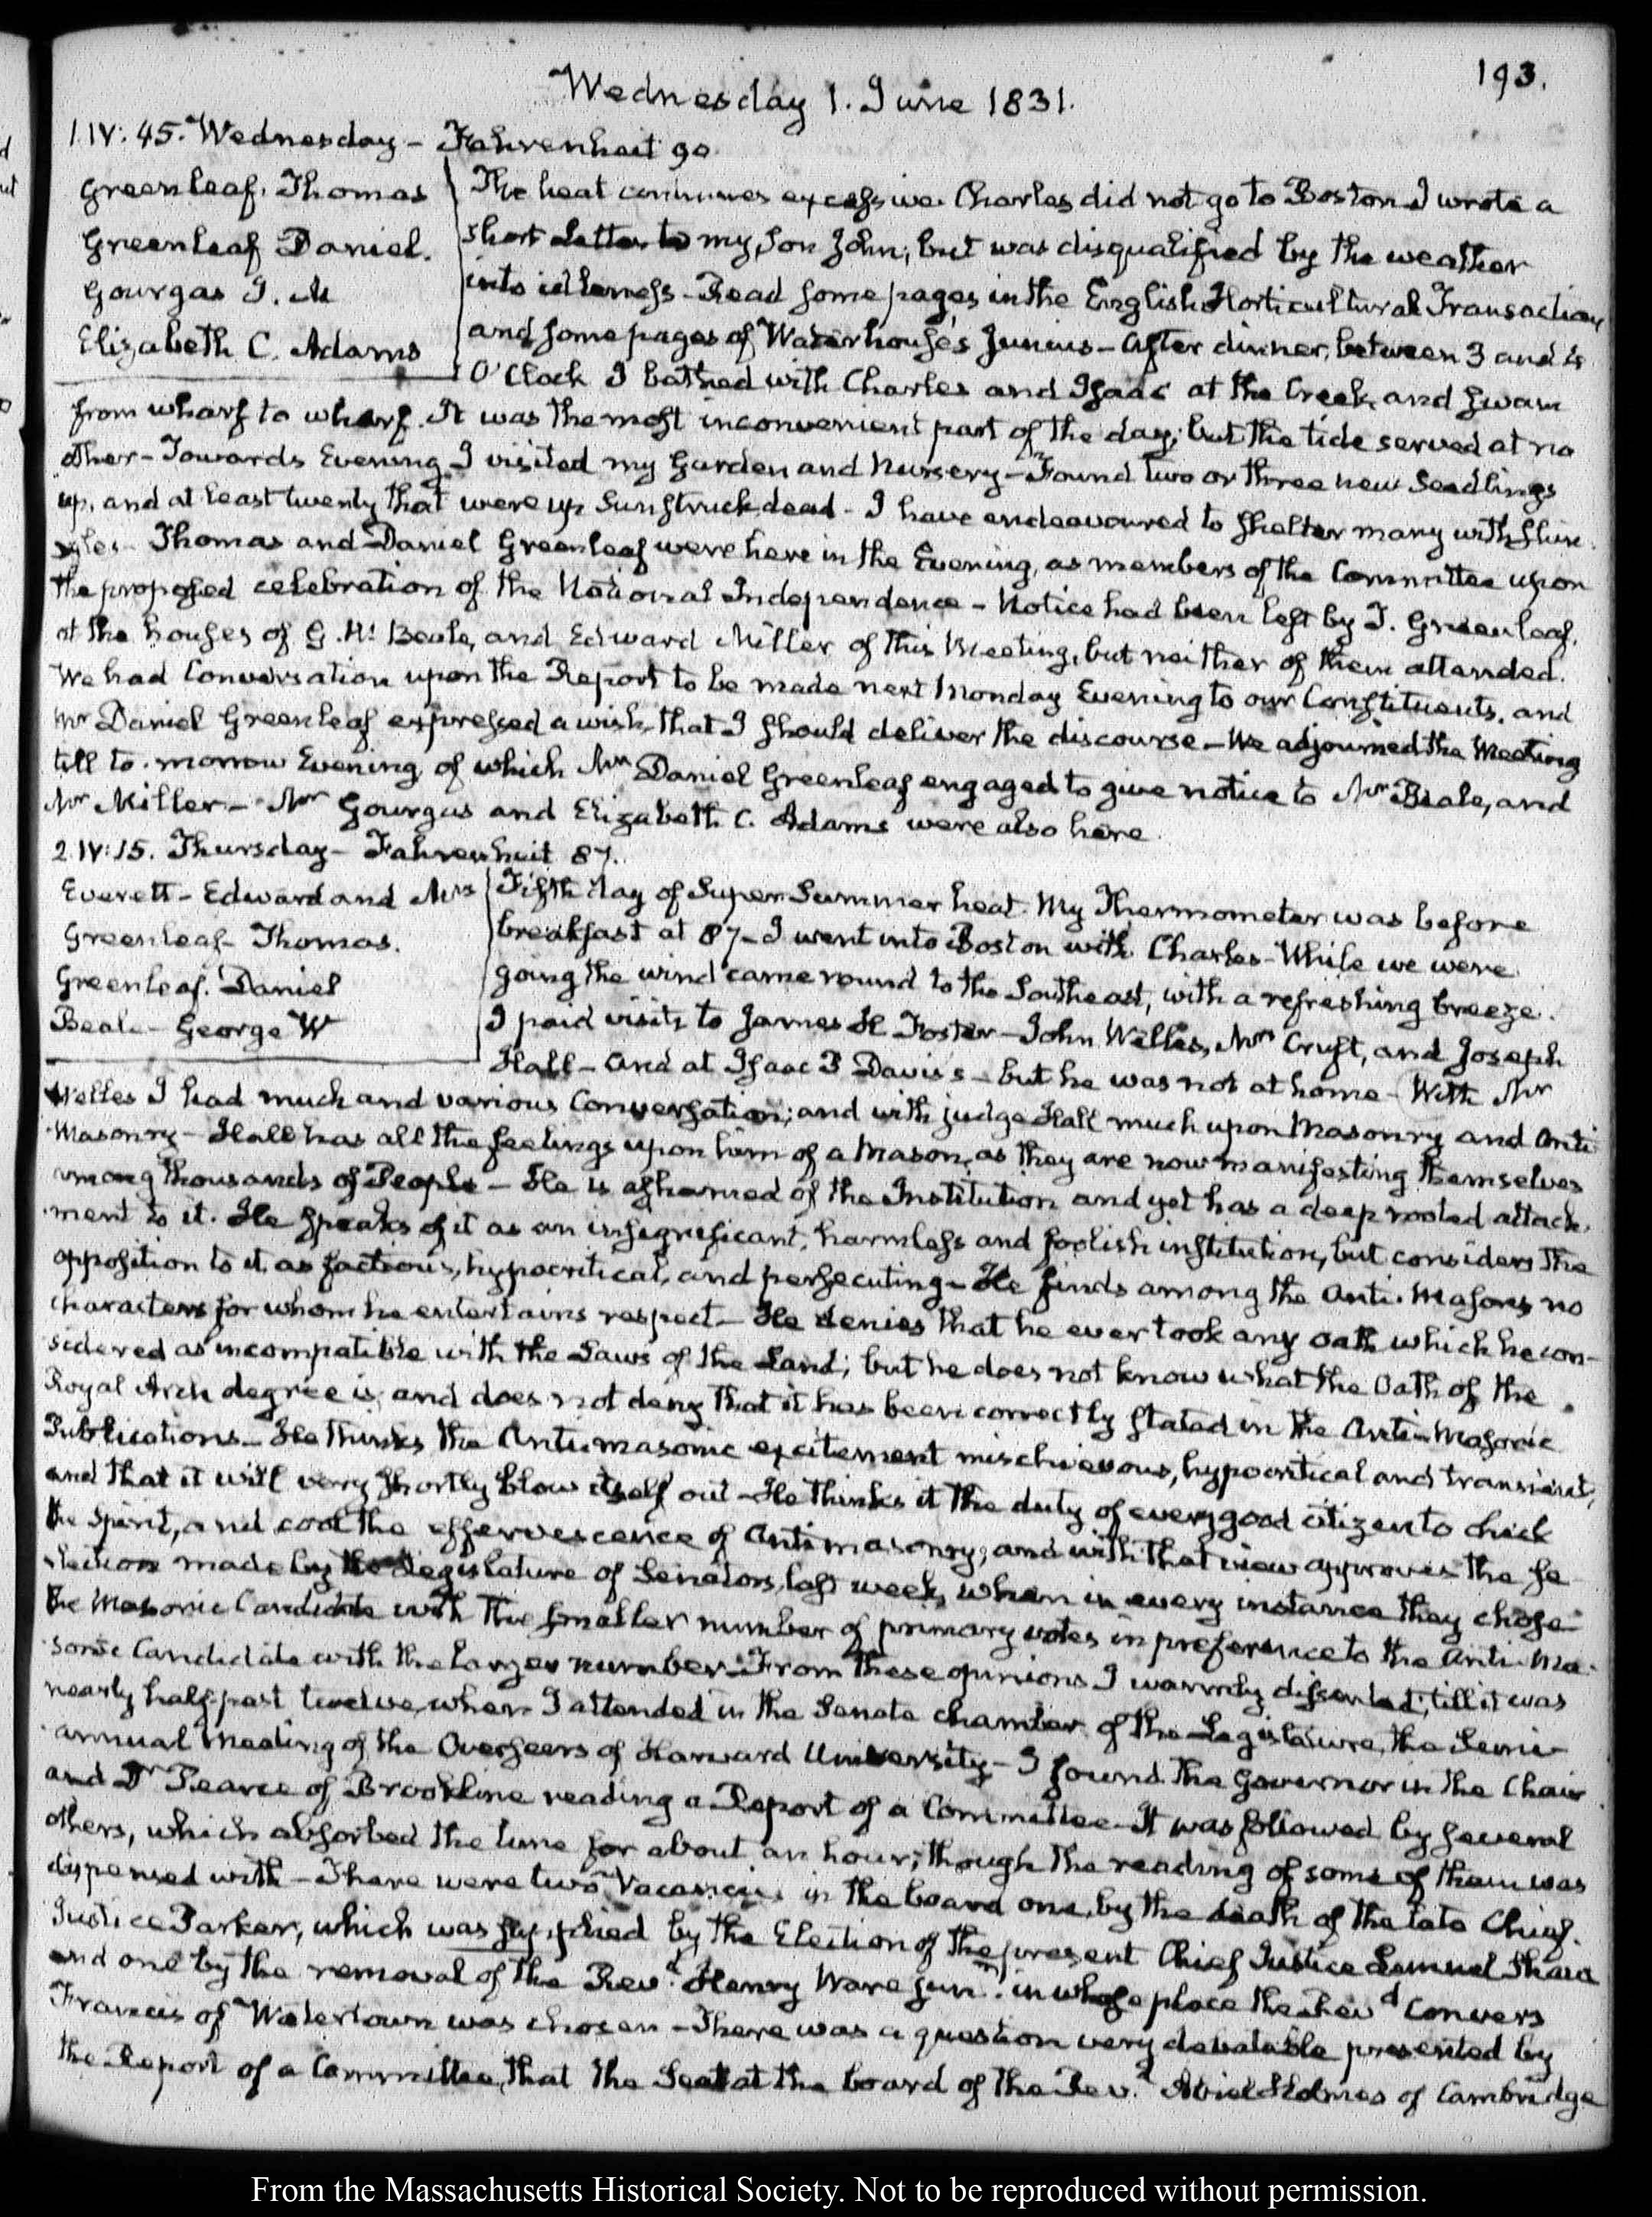 193.
Wednesday 1. June 1831.
1. IV: 45. Wednesday – Fahrenheit 90.
Greenleaf. Thomas
Greenleaf Daniel.
Gourgas J. M
Elizabeth C. Adams
The heat continues excessive. Charles did not go to Boston. I wrote a
short Letter to my Son John; but was disqualified by the weather
into idleness – Read some pages in the English Horticultural Transactions
and some pages of Waterhouse's Junius – After dinner, between 3 and 4
O'Clock I bathed with Charles and Isaac at the Creek, and swam
from wharf to wharf. It was the most inconvenient part of the day; but the tide served at no
other – Towards Evening I visited my Garden and Nursery – Found two or three new Seedlings
up, and at least twenty that were up Sunstruck, dead – I have endeavoured to shelter many with shin
gles – Thomas and Daniel Greenleaf were here in the Evening, as members of the Committee upon
the proposed celebration of the National Independence – Notice had been left by T. Greenleaf,
at the houses of G. W. Beale, and Edward Miller of this Meeting, but neither of them attended.
We had Conversation upon the Report to be made next Monday Evening to our Constituents, and
Mr Daniel Greenleaf expressed a wish, that I should deliver the discourse – We adjourned the Meeting
till to-morrow Evening, of which Mr Daniel Greenleaf engaged to give notice to Mr Beale, and
Mr Miller – Mr Gourgas and Elizabeth C. Adams were also here.
2. IV: 15. Thursday – Fahrenheit 87.
Everett – Edward and Mrs
Greenleaf – Thomas.
Greenleaf. Daniel
Beale – George W
Fifth day of Super Summer heat. My Thermometer was before
breakfast at 87 – I went into Boston with Charles – While we were
going the wind came round to the Southeast, with a refreshing breeze.
I paid visits to James H Foster – John Welles, Mrs Cruft, and Joseph
Hall – and at Isaac P Davis's – but he was not at home – With Mr
Welles I had much and various Conversation; and with judge Hall much upon Masonry and Anti
Masonry – Hall has all the feelings upon him of a Mason, as they are now manifesting themselves
among thousands of People – He is ashamed of the Institution and yet has a deep rooted attach-
ment to it. He speaks of it as an insignificant, harmless and foolish institution, but considers the
opposition to it, as factious, hypocritical, and persecuting – He finds among the Anti-Masons no
characters for whom he entertains respect – He denies that he ever took any oath which he con-
sidered as incompatible with the Laws of the Land; but he does not know what the Oath of the
Royal Arch degree is, and does not deny that it has been correctly stated in the Anti-Masonic
Publications – He thinks the Anti-masonic excitement mischievous, hypocritical and transient,
and that it will very shortly blow itself out – He thinks it the duty of every good citizen to check
the Spirit, and cool the effervescence of Antimasonry; and with that view approves the se-
lection made by the Legislature of Senators, last week, when in every instance they chose
the Masonic Candidate with the smaller number of primary votes in preference to the Anti-Ma-
sonic Candidate with the larger number. From these opinions I warmly dissented; till it was
nearly half-past twelve, when I attended in the Senate chamber of the Legislature, the Semi
annual Meeting of the Overseers of Harvard University – I found the Governor in the Chair
and Dr Pearce of Brookline reading a Report of a Committee – It was followed by several
others, which absorbed the time for about an hour; though the reading of some of them was
dispensed with – There were two Vacancies in the board one, by the death of the late Chief.
Justice Parker, which was supplied by the Election of the present Chief Justice Lemuel Shaw
and one by the removal of the Revd. Henry Ware junr. in whose place the Revd Convers
Francis of Watertown was chosen – There was a question very debatable presented by
the Report of a Committee, that the Seat at the board of the Revd. Abiel Holmes of Cambridge
From the Massachusetts Historical Society. Not to be reproduced without permission.